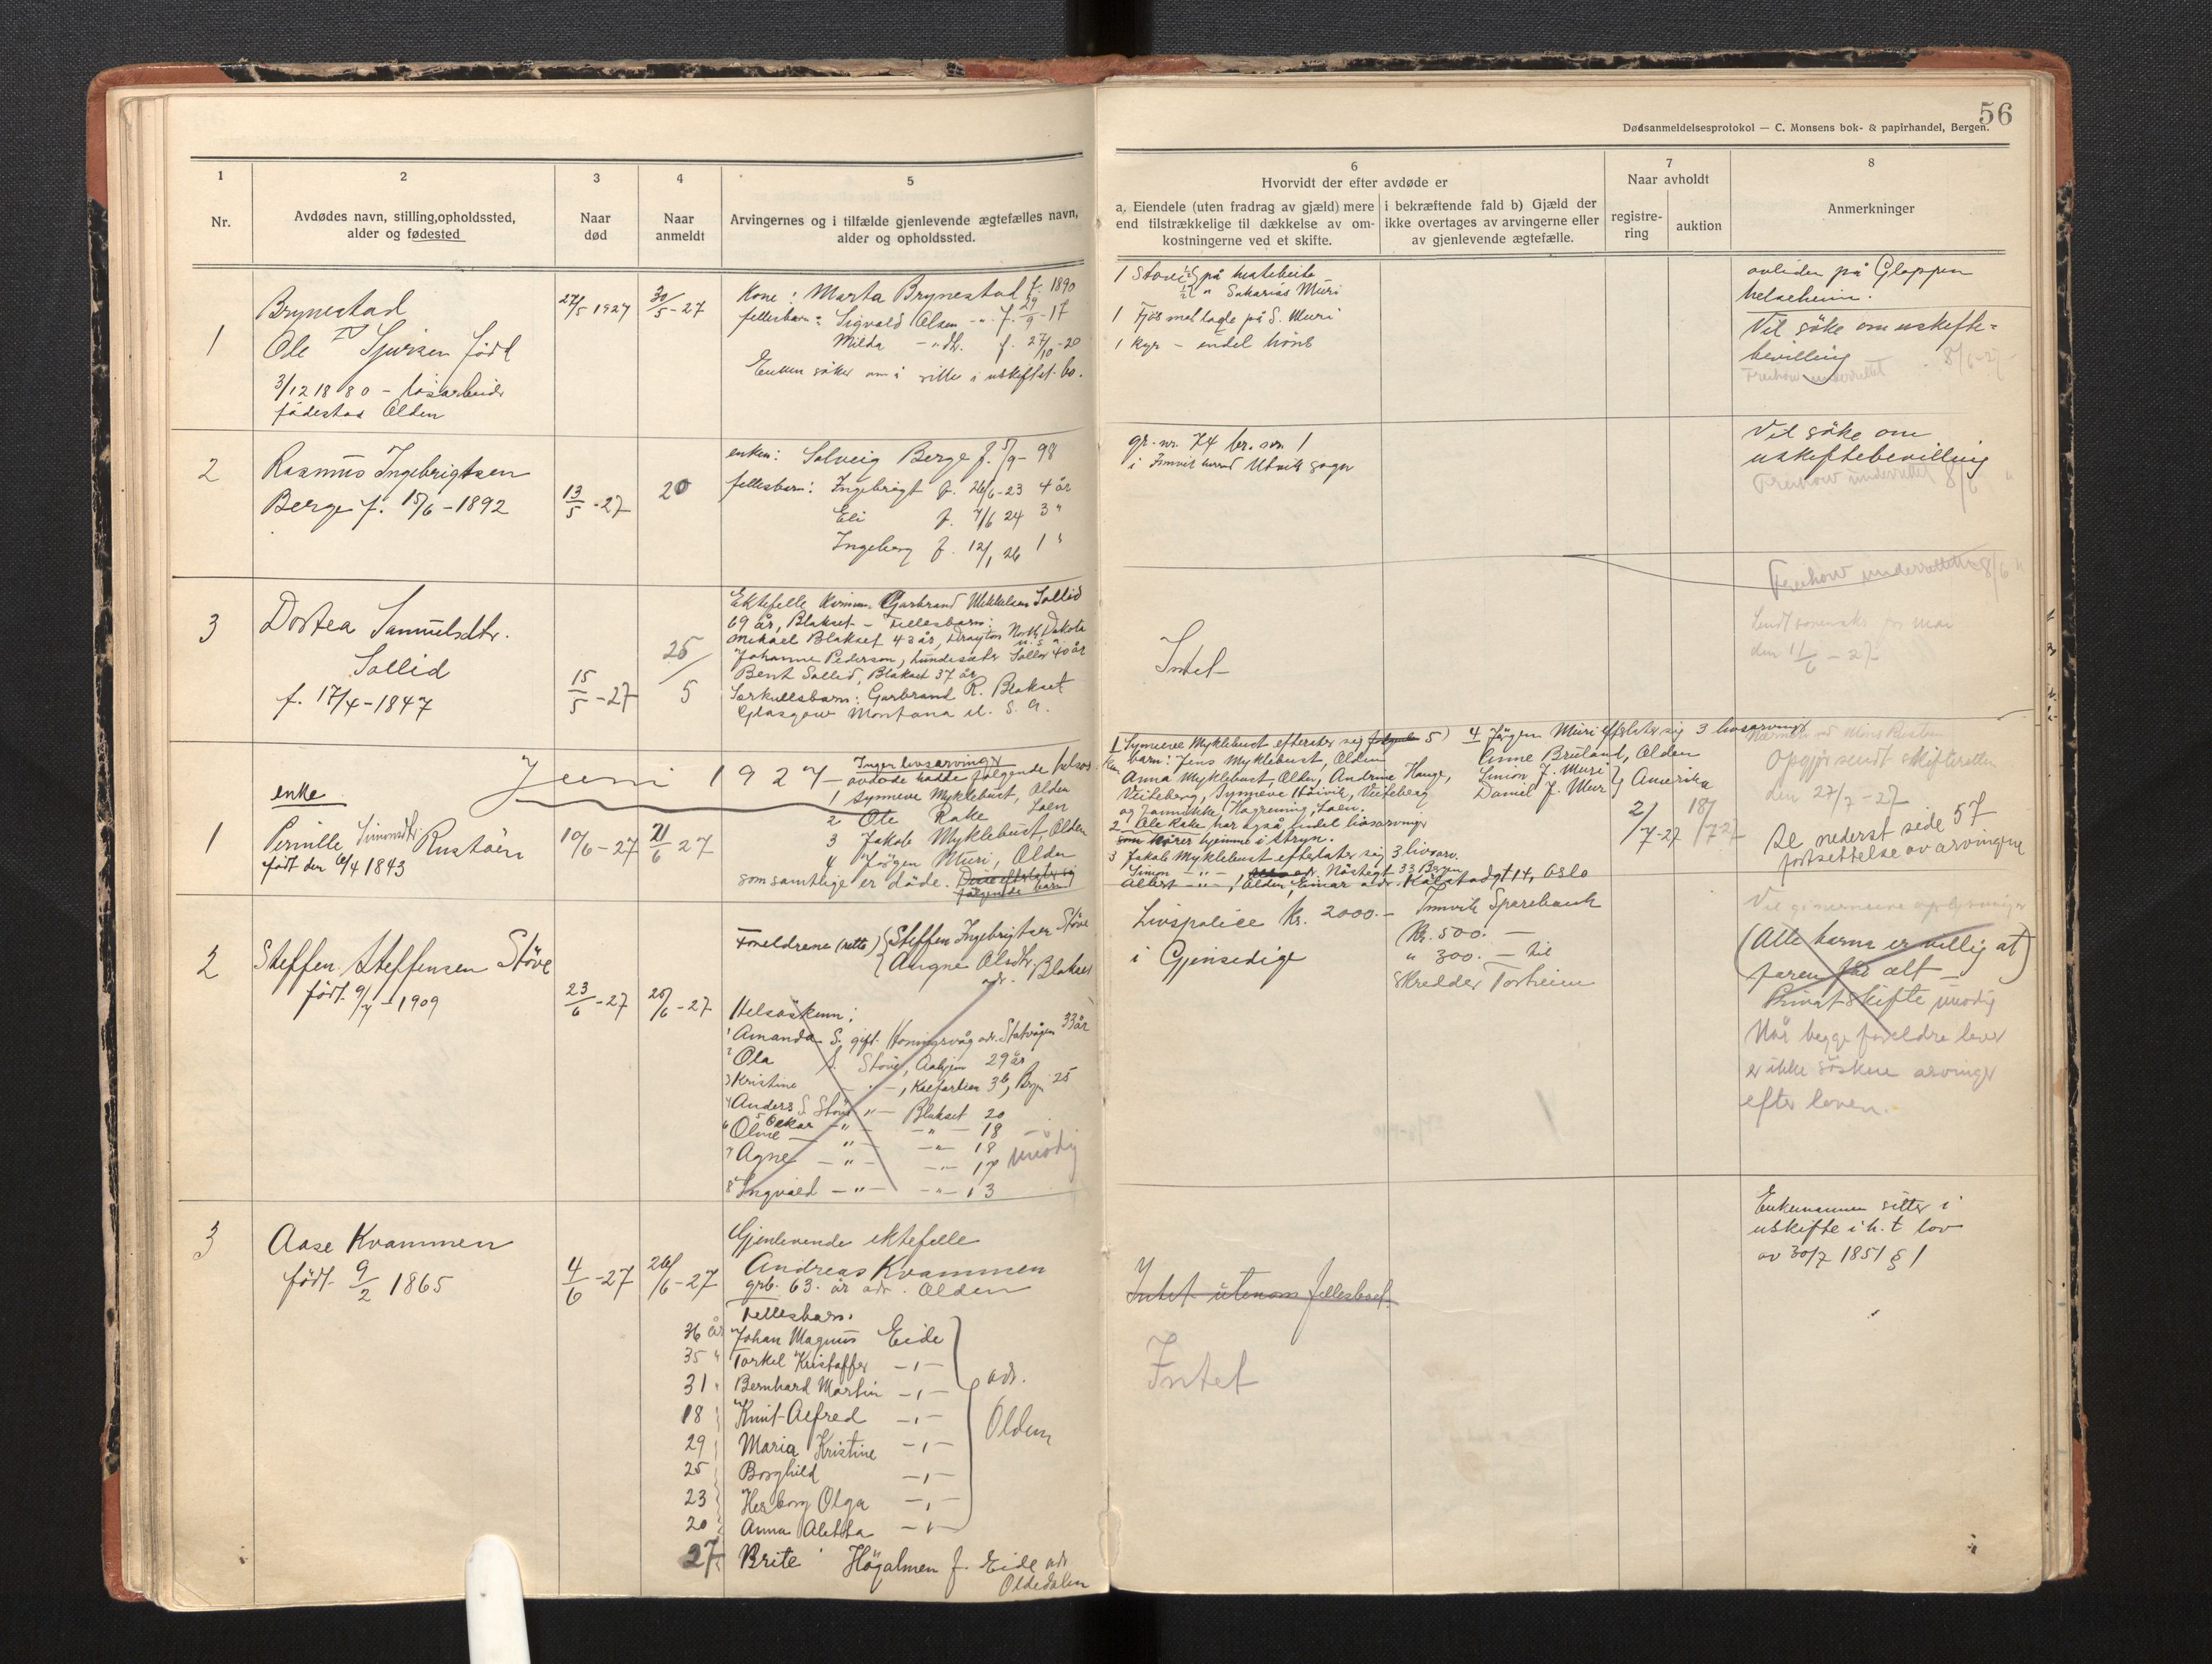 56
Dødsanmeldelsesprotokol — C. Monsens bok- & papirhandel, Bergen.
1
Nr.
2
Avdødes navn, stilling,opholdssted,
alder og fødested
3
Naar
død
4
Naar
anmeldt
5
Arvingernes og i tilfælde gjenlevende ægtefælles navn,
alder og opholdssted.
6
Hvorvidt der efter avdøde er
a. Eiendele (uten fradrag av gjæld) mere
end tilstrækkelige til dækkelse av om-
kostningerne ved et skifte.
i bekræftende fald b) Gjæld der
ikke overtages av arvingerne eller
av gjenlevende ægtefælle.
7
Naar avholdt
registre-
ring
auktion
8
Anmerkninger
1
Brynestad
Ole Sjursen född
3/12 1880 - lösarbeider
födestad Olden
27/5 1927
30/5-27
Kone: Marta Brynestad f. 1890
fellesbarn: Sigvald Olsen f. 29/9-17
Milda f. 27/10-20
Enken söker om å sitte i uskiftet bo.
på
" Sakarias Muri
på S. Muri
1 kyr - endel höns
avliden på Gloppen
helseheim.
Vil söke om uskifte=
bevilling
8/6-27
2
Rasmus Ingebrigtsen
Berge f. 15/6-1892
13/5-27
20
enken: Solveig Berge f. 5/9-98
fellesbarn: Ingebrigt f. 26/6-23 4 år
Eli f. 7/6 24 3 "
Ingeborg f. 12/1 26 1 "
gr. nr. 74 br. nr. 1
i Innvik herred Utvik sogn
Vil söke om
uskiftebevilling
underrettet 8/6 "
3
Dortea Samuelsdtr.
Sollid
f. 17/4-1847
15/5-27
25/5
Ektefelle Garbrand Mikkelsen Sollid
69 år, Blakset - Fellesbarn:
Mikael Blakset 43 år, Drayton North Dakota
Johanne Pederson, 40 år
Bent Sollid, Blakset 37 år
Særkullsbarn: Garbrand R. Blakset
Glasgow Montana U. S. A.
Intet
underrettet 8/6 "
for mai
den 11/6-27
Juni 1927
1
enke
Pernille Simonsdtr. Rustöen
födt den 6/4 1843
10/6-27
21/6 27
Ingen livsarvinger
avdöde hadde fölgende helsös.
1 Synneve Myklebust, Olden
2 Ole Rake Loen
3 Jakob Myklebust, Olden
4 Jörgen Muri, Olden
som samtlige er döde. Disse efterlater sig
fölgende barn
1 Synneve Myklebust efterater sig 5
barn: Jens Myklebust, Olden
Anna Myklebust, Olden, Andrine Hauge,
Veiteberg, Synneve Veiteberg
og Jannikke Loen.
2 Ole Rake har også endel livsarvinger
hjemme i Stryn.
3 Jakob Myklebust efterlater sig 3 livsarv.
Simon - " - Nöstegt 33 Bergen
Albert - " - , Olden, Einar adr. 14, Oslo
4 Jörgen Muri efterlater sig 3 livsarvinger
Anne Bruland, Olden
Simon J. Muri
Daniel J. Muri } Amerika
2/7-27
18/7 27
Opgjör sendt skifteretten
den 27/7-27
Se nederst side 57
fortsettelse av arvingene
2
Steffen Steffensen Stöve
födt 9/4-1909
23/6-27
25/6-27
Foreldrene (rette) { Steffen Ingebrigtsen Stöve
Blakset
Helsösken:
1 Amanda S. gift Honningsvåg adr. 33 år
2 Ola S. Stöve, 29 år
3 Kristine - " - , Kalfarlien 36, Bergen 25
4 Anders S. Stöve " - Blakset 20
5 Oskar - " - - " - 18
6 Oline - " - - " - 18
7 Agne - " - - " - 17
8 Ingvald - " - - " - 13
unödig
Livspolice Kr. 2000.-
i Gjensedige
Innvik Sparebank
Kr. 500.-
" 300.- til
Skredder Torheim
(Alle barna er villig at
faren får alt -
Privat skifte unödig
Når begge foreldre lever
er ikke sösken arvinger
efter loven.
3
Aase Kvammen
födt 9/2 1865
4/6-27
26/6-27
Gjenlevende ektefelle
Andreas Kvammen
grb. 63 år adr. Olden
Fellesbarn:
36 år Johan Magnus Eide
35 " Torkel Kristoffer - " -
31 " Bernhard Martin - " -
18 Knut Alfred - " -
29 Maria Kristine - " -
25 Borghild - " -
23 Herborg Olga - " -
20 Anna Aletta - " -
adr.
Olden
27 Brite Högalmen f. Eide adr
Oldedalen
Intet utenom fellesboet.
Intet
Enkemannen sitter i
uskifte i h.t lov
av 30/7 1851 § 1